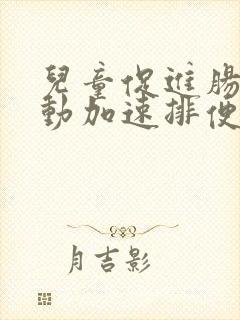 兒童促進腸
動加速排便
月吉影